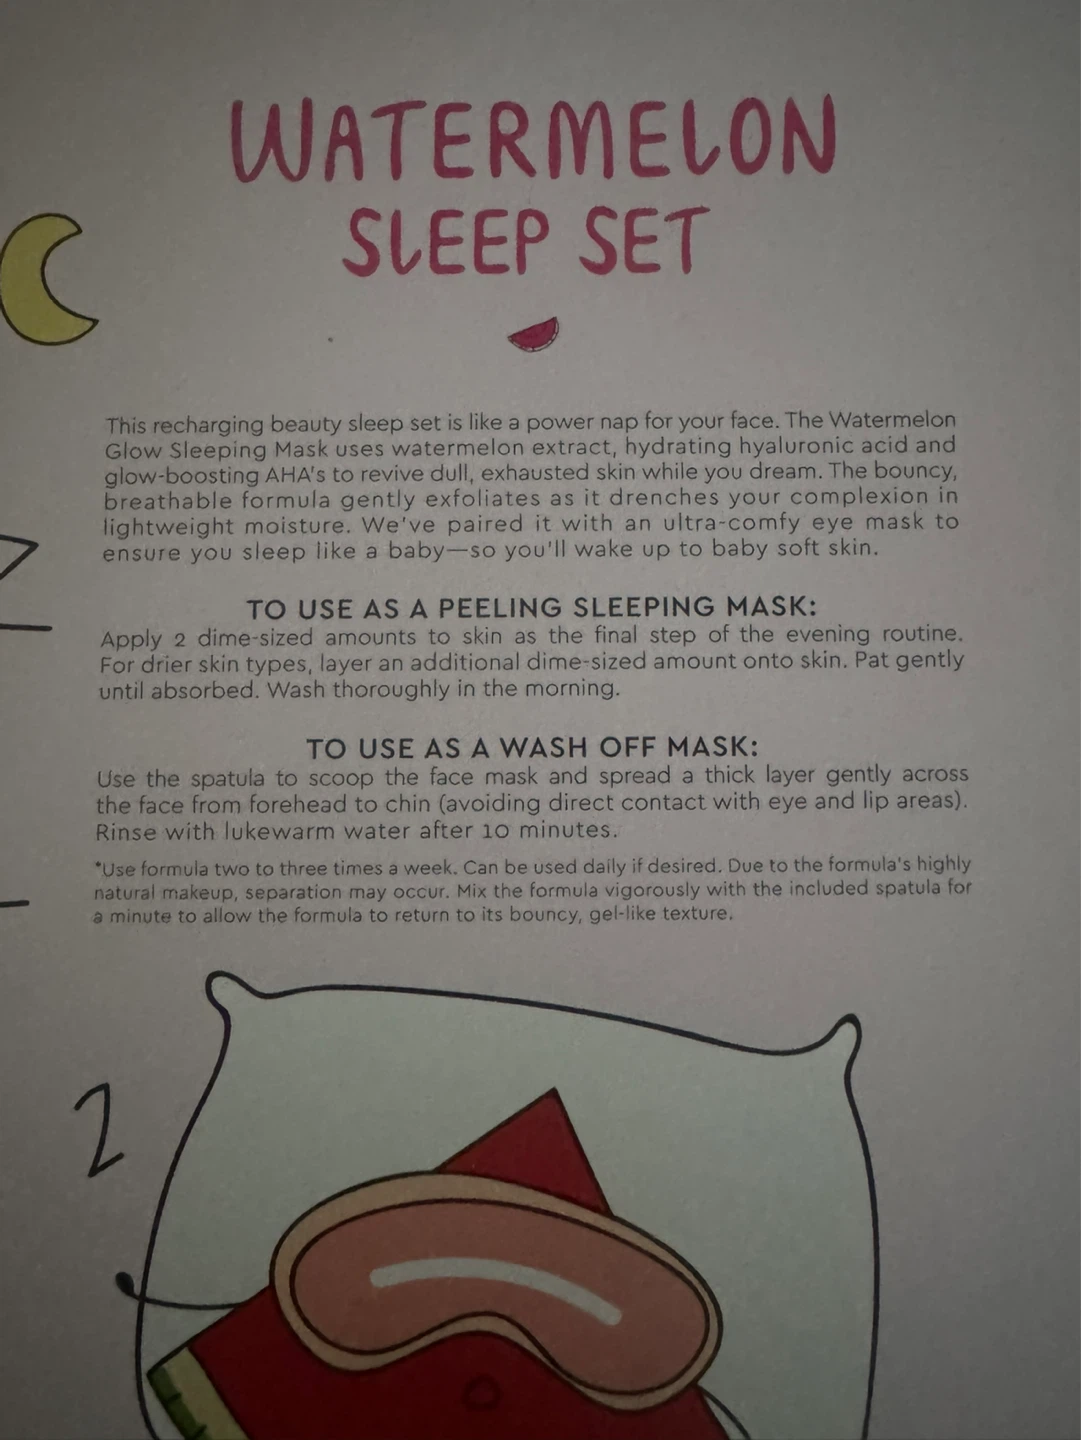 WATERMELON
SLEEP SET
This recharging beauty sleep set is like a power nap for your face. The Watermelon
Glow Sleeping Mask uses watermelon extract, hydrating hyaluronic acid and
glow-boosting AHA's to revive dull, exhausted skin while you dream. The bouncy,
breathable formula gently exfoliates as it drenches your complexion in
lightweight moisture. We've paired it with an ultra-comfy eye mask to
ensure you sleep like a baby—so you'll wake up to baby soft skin.
TO USE AS A PEELING SLEEPING MASK:
Apply 2 dime-sized amounts to skin as the final step of the evening routine.
For drier skin types, layer an additional dime-sized amount onto skin. Pat gently
until absorbed. Wash thoroughly in the morning.
TO USE AS A WASH OFF MASK:
Use the spatula to scoop the face mask and spread a thick layer gently across
the face from forehead to chin (avoiding direct contact with eye and lip areas).
Rinse with lukewarm water after 10 minutes.
*Use formula two to three times a week. Can be used daily if desired. Due to the formula's highly
natural makeup, separation may occur. Mix the formula vigorously with the included spatula for
a minute to allow the formula to return to its bouncy, gel-like texture.
Z